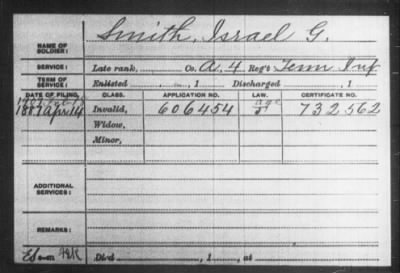 Smith, Israel G.
NAME OF SOLDIER:
SERVICE: Late rank, Co. A, 4 Reg't Tenn Inf
TERM OF SERVICE: Enlisted , 1 Discharged , 1
DATE OF FILING. CLASS. APPLICATION NO. LAW. CERTIFICATE NO.
1887 Apr 14 Invalid, 606454 732562
Widow,
Minor,
ADDITIONAL SERVICES:
REMARKS:
Died , 1 , at